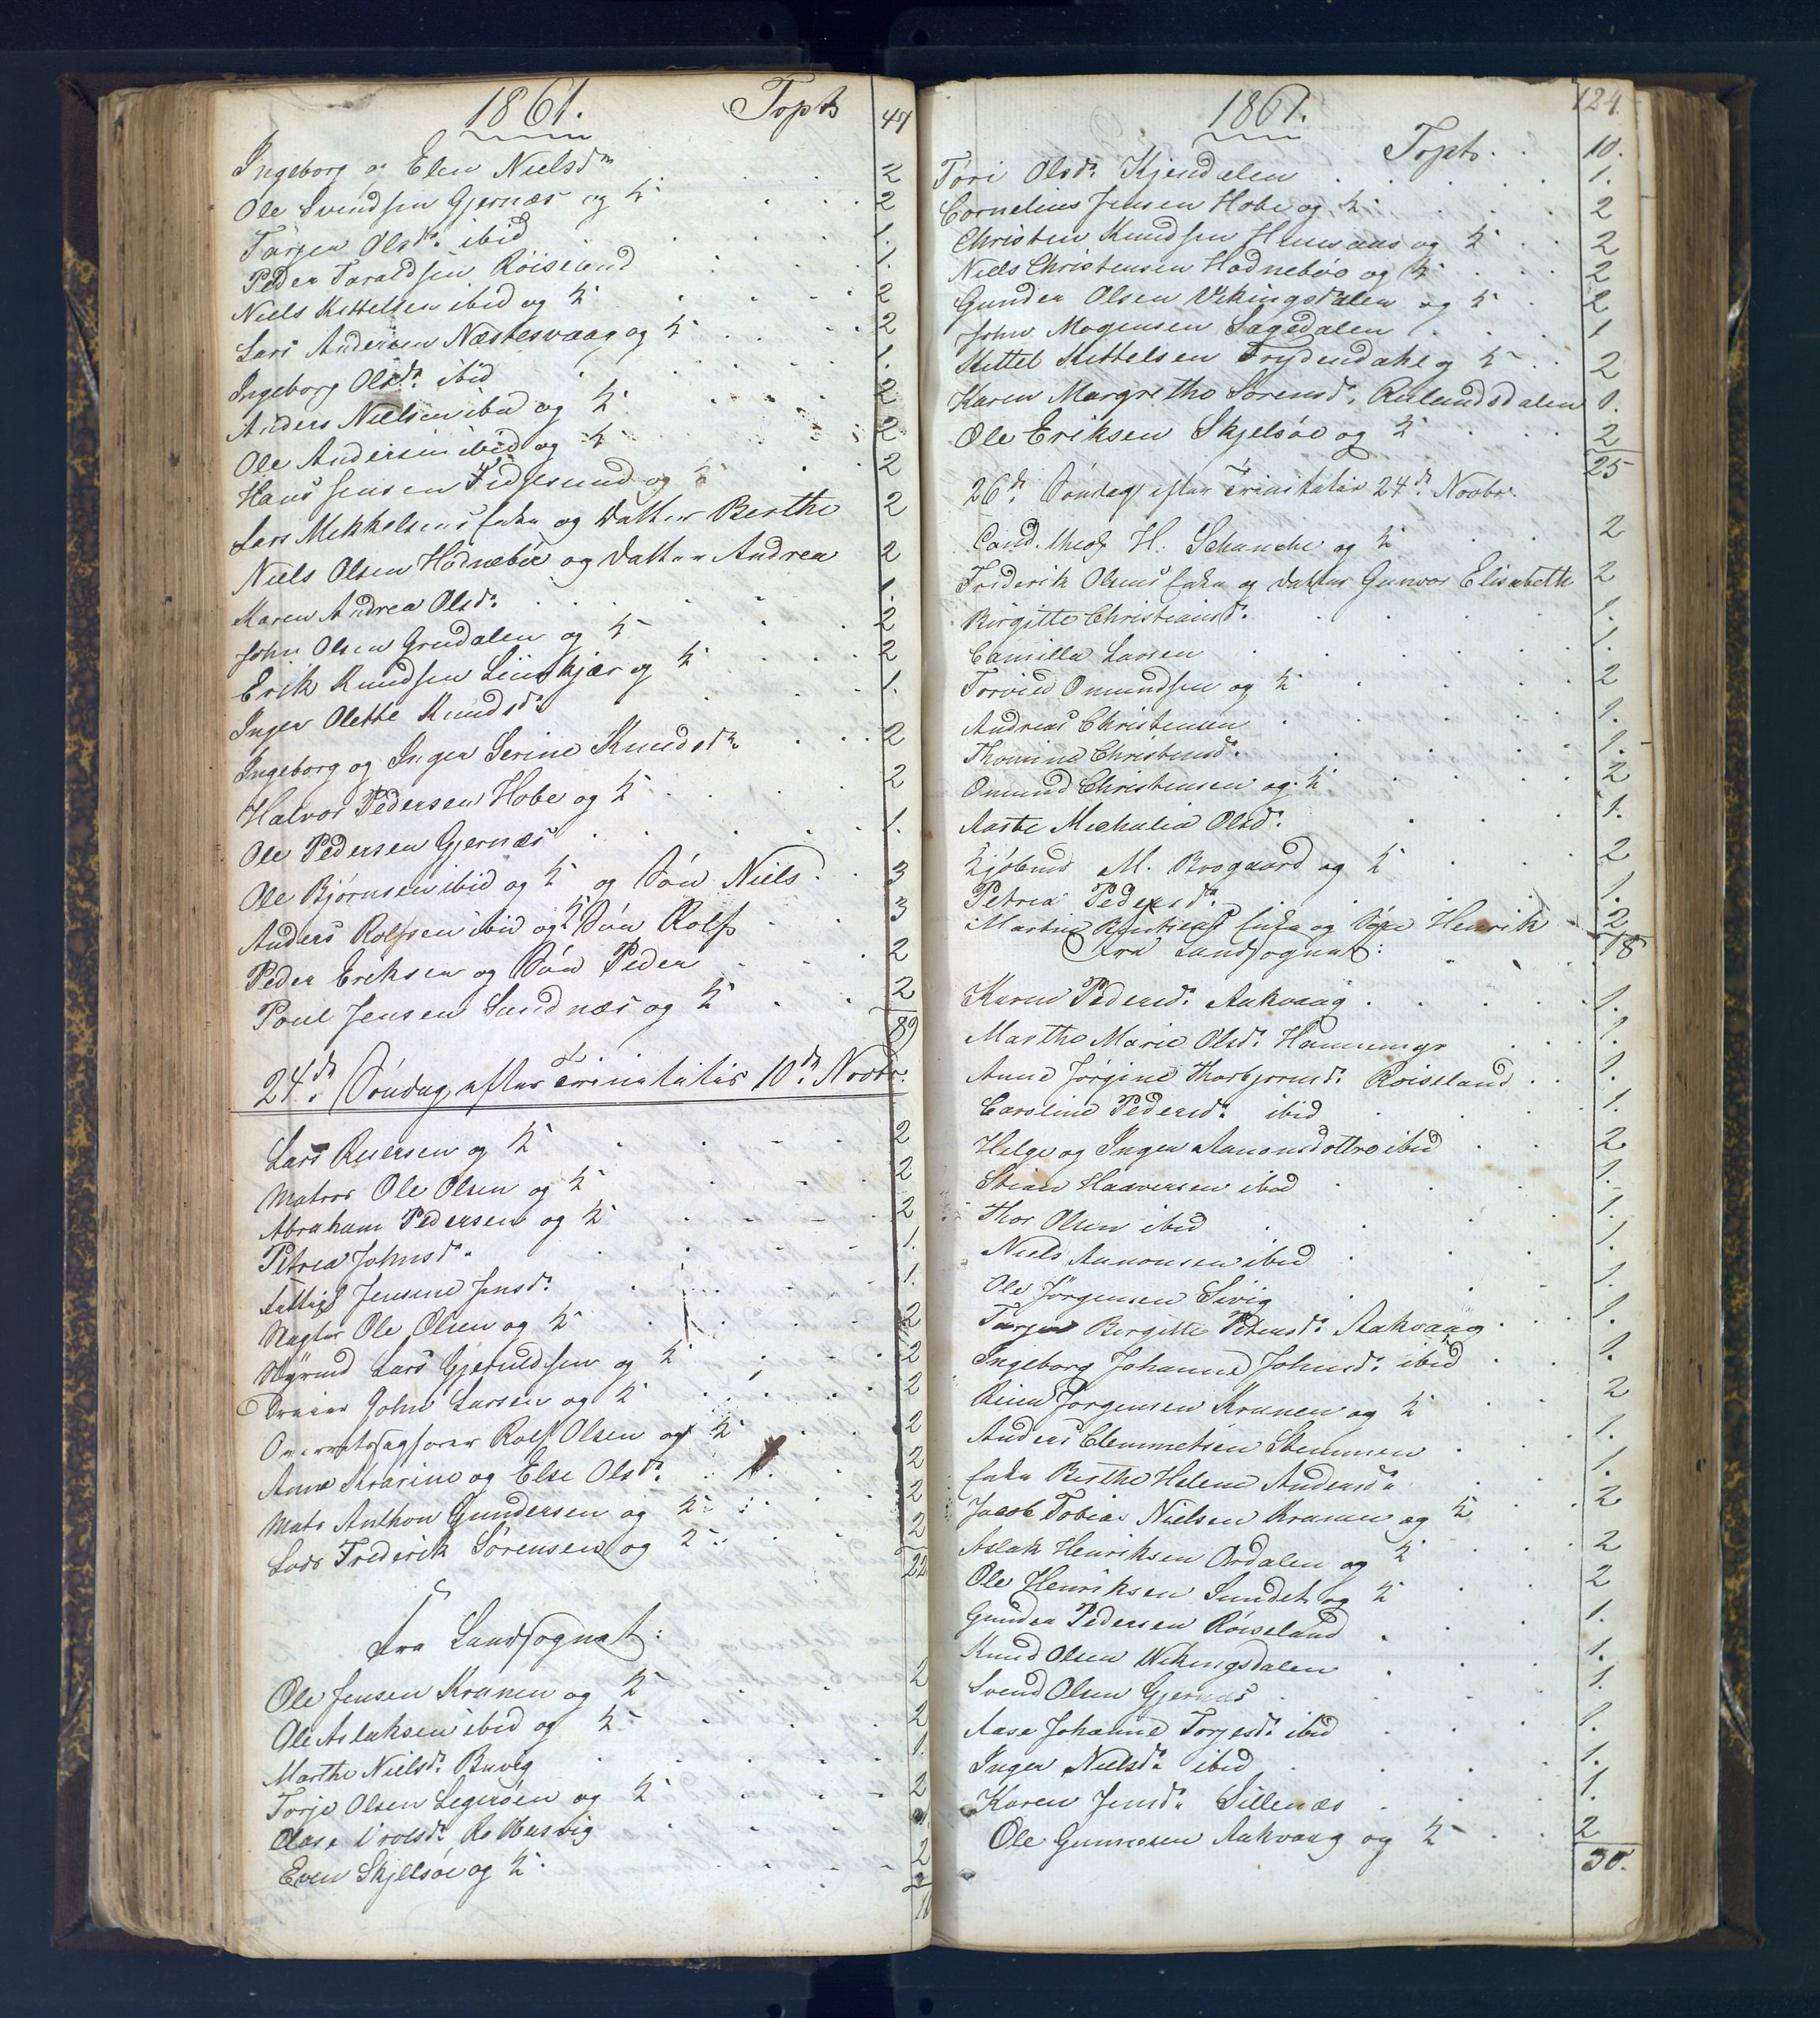 1861.
Topts 47
Ingeborg og Elen Nielsdtr 2
Ole Svendsen Gjernæs og K 2
Tarjer Olsdr. ibid 1.
Peder Taraldsen Röiseland 1.
Niels Kittelsen ibid og K 2
Lars Andersen Næstesvaag og K 2
Ingeborg Olsdr. ibid 1.
Anders Nielsen ibid og K 2
Ole Andersen ibid og K 2
Hans Jensen Fidjesund og K 2
Lars Mikkelsens Enke og Datter Berthe 2
Niels Olsen Hödneböe og Datter Andrea 2
Maren Andrea Olsdr. 1.
John Olsen Grudalen og K 2
Erik Knudsen Liinskjær og K 2
Inger Olette Knudsdr. 1.
Ingeborg og Inger Serine Knudsdr. 2
Halvor Pedersen Hobe og K 2
Ole Pedersen Gjernæs 1.
Ole Björnsen ibid og K og Sön Niels 3
Anders Rolfsen ibid og K Sön Rolf 3
Peder Eriksen og Sön Peder 2
Poul Jensen Sundnæs og K 2
89
24de Söndag efter Trinitatis 10de Novbr.
Lars Reiersen og K 2
Matros Ole Olsen og K 2
Abraham Pedersen og K 2
Petrea Johnsdr. 1.
Fattigl Jensine Jensdr. 1.
Vægter Ole Olsen og K 2
Styrmd Lars Gjeruldsen og K 2
Dreier John Larsen og K 2
Overretssagförer Rolf Olsen og K 2
Anne Marine og Else Olsdr. 2
Mats Anthon Gundersen og K 2
Lods Frederik Sörensen og K 2
22
Fra Landsognet:
Ole Jensen Kranen og K 2
Ole Aslaksen ibid og K 2
Marthe Nielsdr. Buvig 1.
Torje Olsen Legeröen og K 2
Even Skjelsöe og K 2
1861. 124.
Topts. 10.
Töri Olsdr. Kjendalen 1.
Cornelius Jensen Hobe og K 2
Christen Knudsen Hemsaas og K 2
Niels Christensen Hödneböe og K 2
Gunder Olsen Vikingsdalen og K 2
John Mogensen Sagedalen 1
Kittel Kittelsen Frydendahl og K 2
Karen Margrethe Sörensd. Reilundsdalen 1.
Ole Eriksen Skjelsöe og K 2
25
26de Söndag efter Trinitatis 24de Novbr.
Cand. theol H. Schanche og K 2
Frederik Olsens Enke og Datter Gunvor Elisabeth 2
Birgitte Christiansd. 1.
Camilla Larsen 1.
Torvild Omundsen og K 2
Andreas Christensen 1.
Thomine Christensd. 1.
Omund Christensen og K 2
Aaste Michalia Olsd. 1.
Kjöbmd M. Brogaard og K 2
Petrea Pedersdr. 1.
Martin Bentsens Enke og Sön Henrik 2
Fra Landsognet: 18
Karen Pedersd. Aakvaag 1.
Marthe Marie Olsd. Hammermyr 1.
Anne Jörgine Thorbjörnsd. Röiseland 1.
Caroline Pedersd. ibid 1.
Helge og Inger Aanonsdöttre ibid 2
Stian Haaversen ibid 1.
Thor Olsen ibid 1.
Niels Aanonsen ibid 1.
Ole Jörgensen Sivig 1.
Tarjer Birgitte Petersd. Aakvaag 1.
Ingeborg Johanne Johnsd. ibid 1.
Reier Jörgensen Kranen og K 2
Anders Clemmetsen Stemmen 1.
Enke Berthe Helene Andersdr 1.
Jacob Tobias Nielsen Kranen og K 2
Aslak Henriksen Ordalen og K 2
Ole Henriksen Sundet og K 2
Gunder Pedersen Röiseland 1.
Knud Olsen Wikingsdalen 1.
Svend Olsen Gjernæs 1.
Aase Johanne Torjesd. ibid 1.
Inger Nielsd. ibid 1.
Karen Jensd. Sillenæs 1.
Ole Gunnersen Aakvaag og K 2
30.